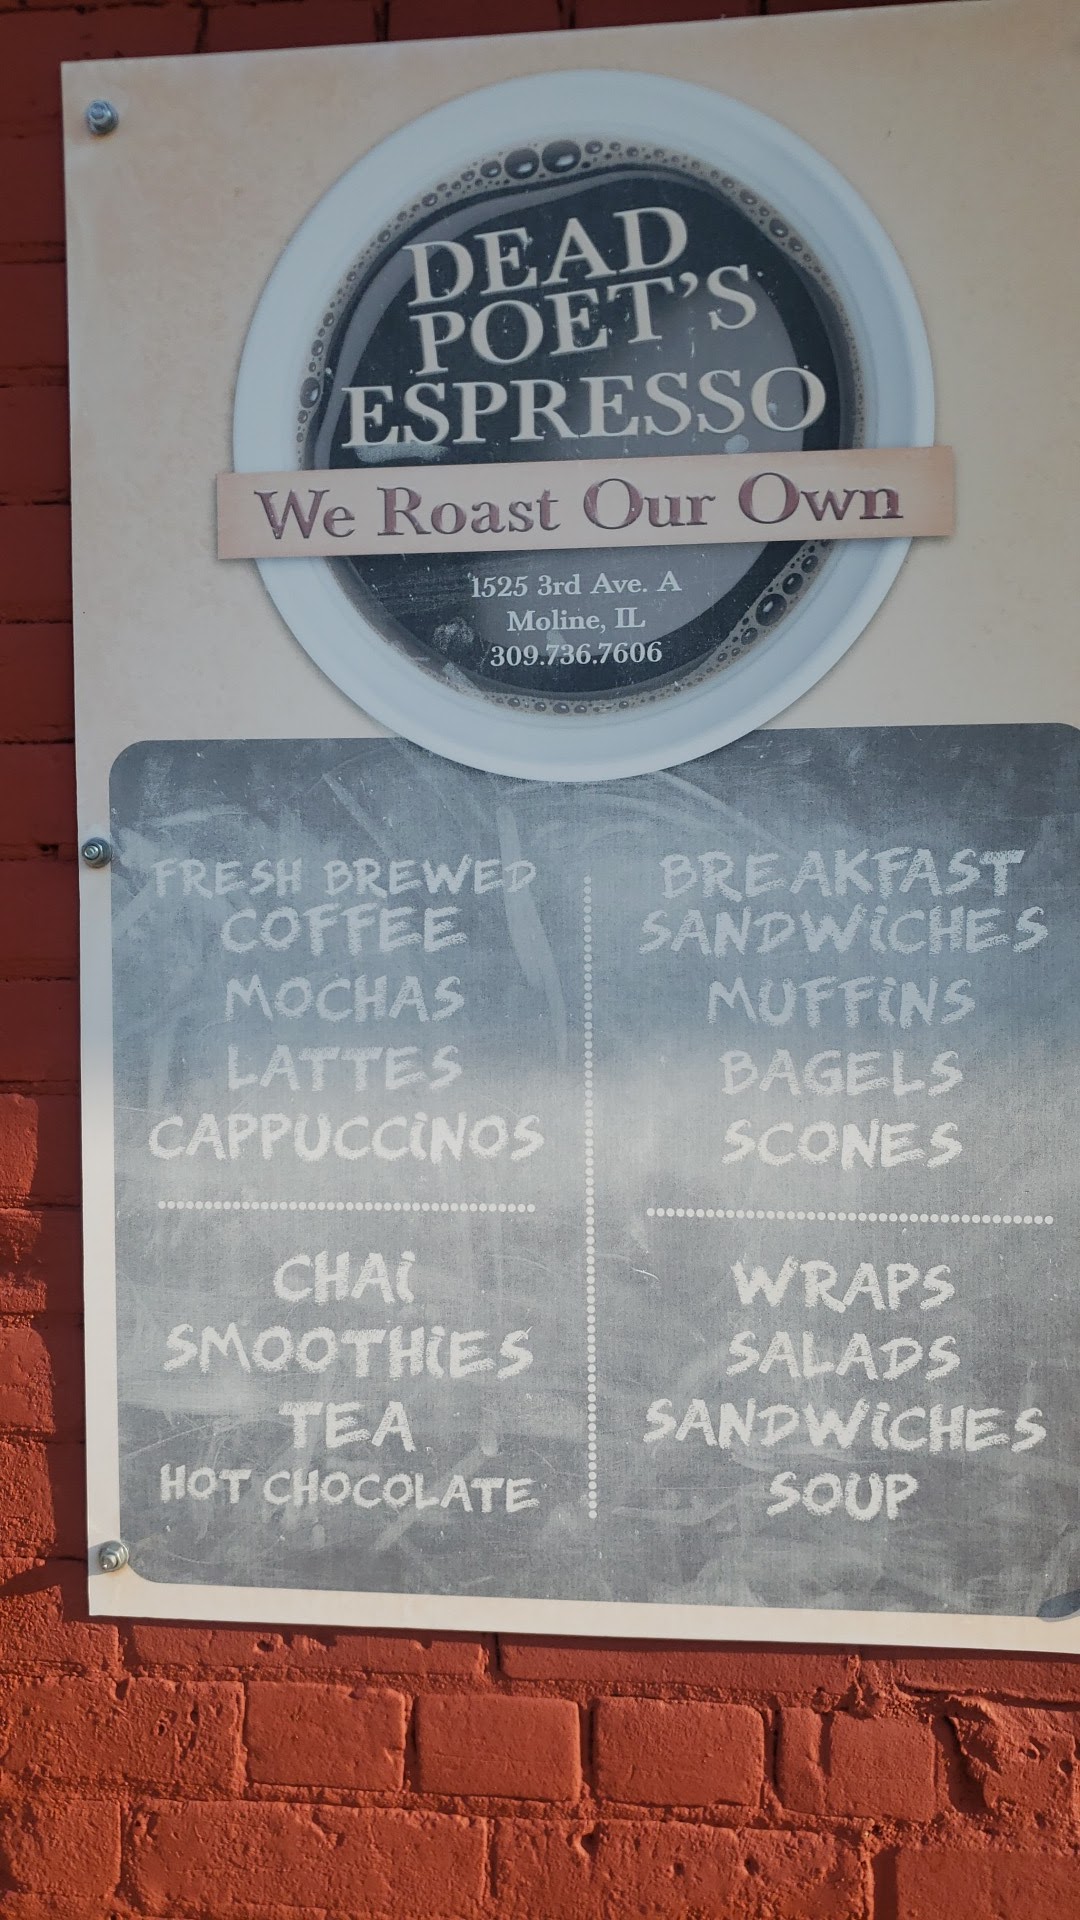 DEAD
POET'S
ESPRESSO
We Roast Our Own
1525 3rd Ave. A
Moline, IL
309.736.7606
FRESH BREWED
COFFEE
MOCHAS
LATTES
CAPPUCCiNOS
CHAi
SMOOTHiES
TEA
HOT CHOCOLATE
BREAKFAST
SANDWiCHES
MUFFiNS
BAGELS
SCONES
WRAPS
SALADS
SANDWiCHES
SOUP